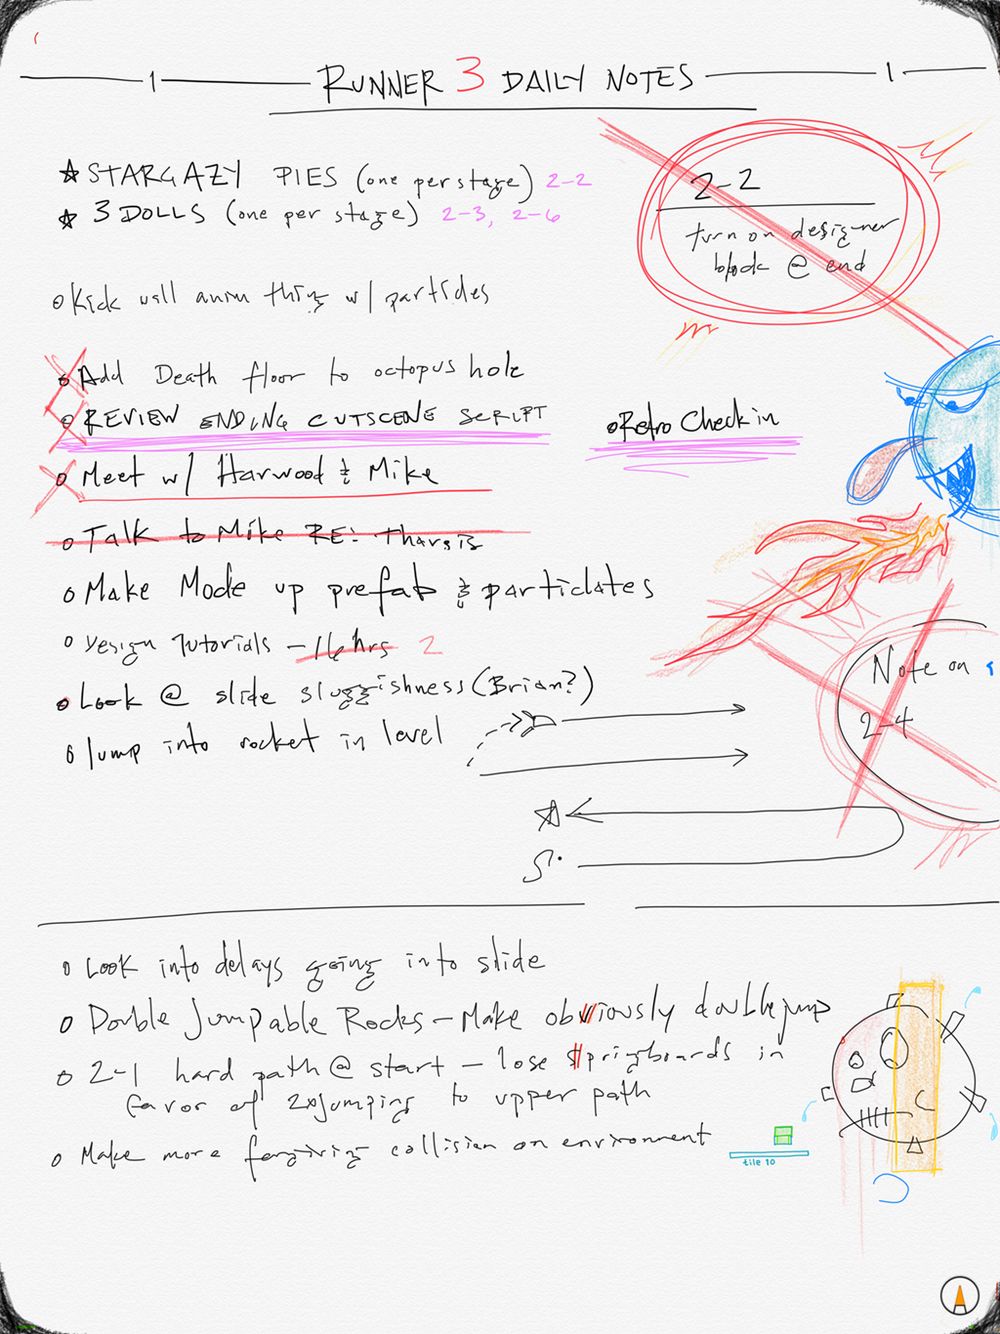 1 RUNNER 3 DAILY NOTES 1
STARGAZY PIES (one per stage) 2-2
3 DOLLS (one per stage) 2-3, 2-6
2-2
turn on designer
block @ end
Kick wall anim thing w/ particles
Add Death floor to octopus hole
REVIEW ENDING CUTSCENE SCRIPT
Retro Check in
Meet w/ Harwood & Mike
Talk to Mike RE: Tharsis
Make Mode up prefab & particlates
Design Tutorials – 16 hrs 2
Look @ slide sluggishness (Brian?)
Note on
2-4
Jump into rocket in level
Look into delays going into slide
Double Jumpable Rocks – Make obviously double jump
2-1 hard path @ start – lose springboards in
favor of 2x jumping to upper path
Make more forgiving collision on environment
tile 10